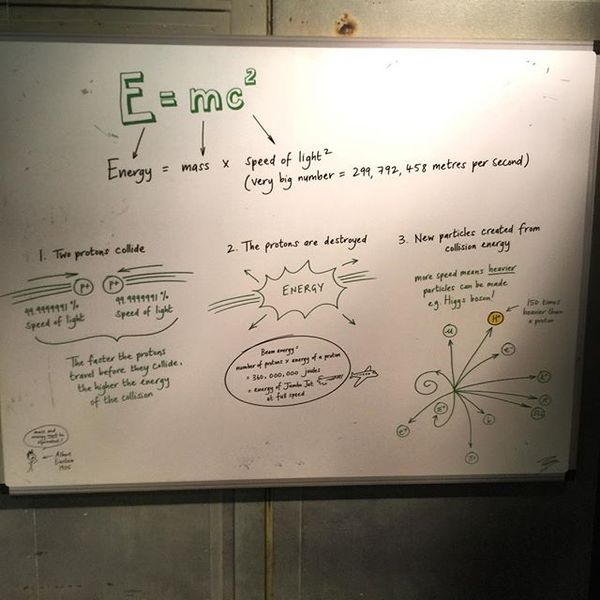 E = mc²
Energy = mass x speed of light²
(very big number = 299,792,458 metres per second)
1. Two protons collide
p+ p+
99.9999991% 99.9999991%
speed of light speed of light
The faster the protons
travel before they collide,
the higher the energy
of the collision
mass and
energy must be
equivalent!
Albert
Einstein
1905
2. The protons are destroyed
ENERGY
Beam energy =
number of protons x energy of a proton
= 360,000,000 joules
= energy of Jumbo Jet
at full speed
3. New particles created from
collision energy
more speed means heavier
particles can be made
e.g. Higgs boson!
150 times
heavier than
a proton
H°
μ
e⁻
e⁺